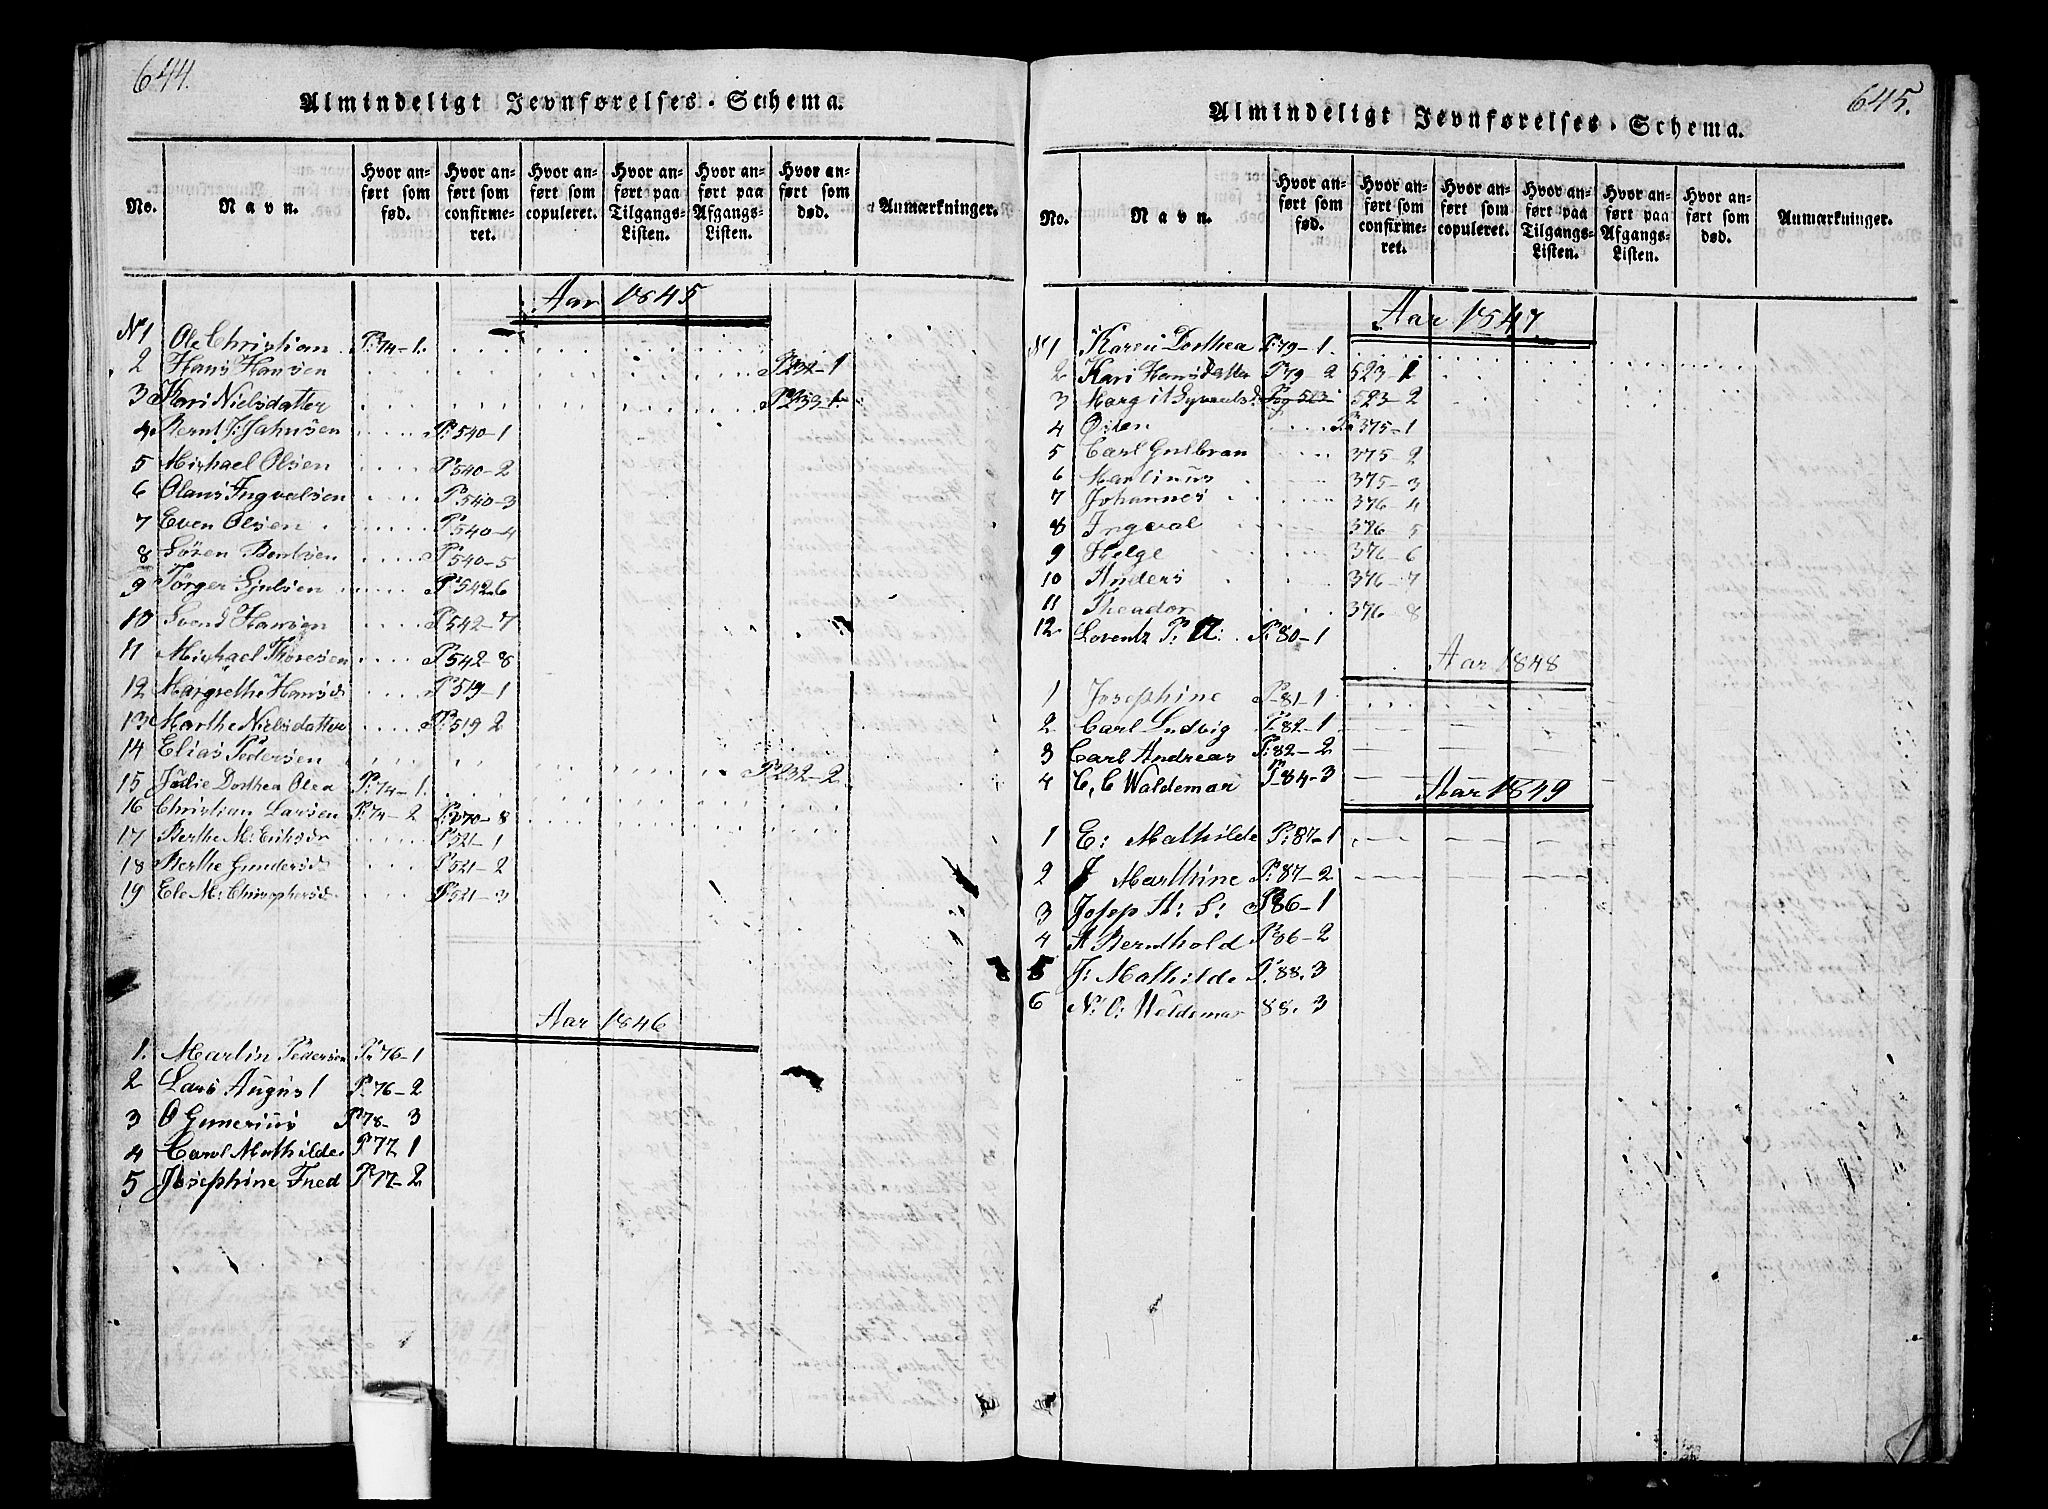 644.
Almindeligt Jevnførelses-Schema.
No. Navn. Hvor anført som fød. Hvor anført som confirmeret. Hvor anført som copuleret. Hvor anført paa Tilgangs-Listen. Hvor anført paa Afgangs-Listen. Hvor anført som død. Anmærkninger.
Aar 1845
No 1 Ole Christian P: 74-1.
2 Hans Hansen P 232-1
3 Kari Nielsdatter P 233-1.
4. Bernt J: Jahnsen P: 540-1
5 Michael Olsen P: 540-2
6 Olaus Ingvalsen P: 540-3
7 Even Olsen P: 540-4
8 Sören Berntsen P: 540-5
9 Törger P: 542.6
10 Svend Hansen P: 542-7
11 Michael Thoresen P: 542-8
12 Margrethe Hansd: P: 519-1
13 Marthe Nielsdatter P: 519 2
14 Elias Pedersen P 232-2
15 Julie Dorthea Olea P: 74-1.
16 Christian Larsen P: 74-2 P: 370-8
17 Berthe M: Eriksdr P: 521-1
18 Berthe Gundersd: P: 521-2
19 Ele M: Chrisophersd: P: 521-3
Aar 1846
1. Martin Pedersen P: 76-1
2 Lars August P: 76-2
3 O Gunerius P 78-3
4 Carol Mathilde P 77 1
5 Josephine Fred P: 77-2
645.
Almindeligt Jevnførelses-Schema.
No. Navn. Hvor anført som fød. Hvor anført som confirmeret. Hvor anført som copuleret. Hvor anført paa Tilgangs-Listen. Hvor anført paa Afgangs-Listen. Hvor anført som død. Anmærkninger.
Aar 1847
No 1 Karen Dorthea P: 79-1.
2 Kari Hansdatter P 79-2 523-1
3 Margit 523-2
4 Osten P: 375-1
5 Carl Gulbran 375-2
6 Martinus 375-3
7 Johannes 376-4
8 Ingval 376 5
9 Helge 376-6
10 Anders 376-7
11 Theador 376-8
12 Lorentz P: A: P: 80-1
Aar 1848
1 Josephine P-81-1
2 Carl Ludvig P: 82-1
3 Carl Andreas P: 82-2
4 C, C Waldemar P-84-3
Aar 1849
1 E: Mathilde P: 87-1
2 J Marthine P: 87-2
3 Josep A: S: P 86-1
4 A Bernthold P: 86-2
5 J: Mathilde P: 88.3
6 N: O: Weldemar 88.3